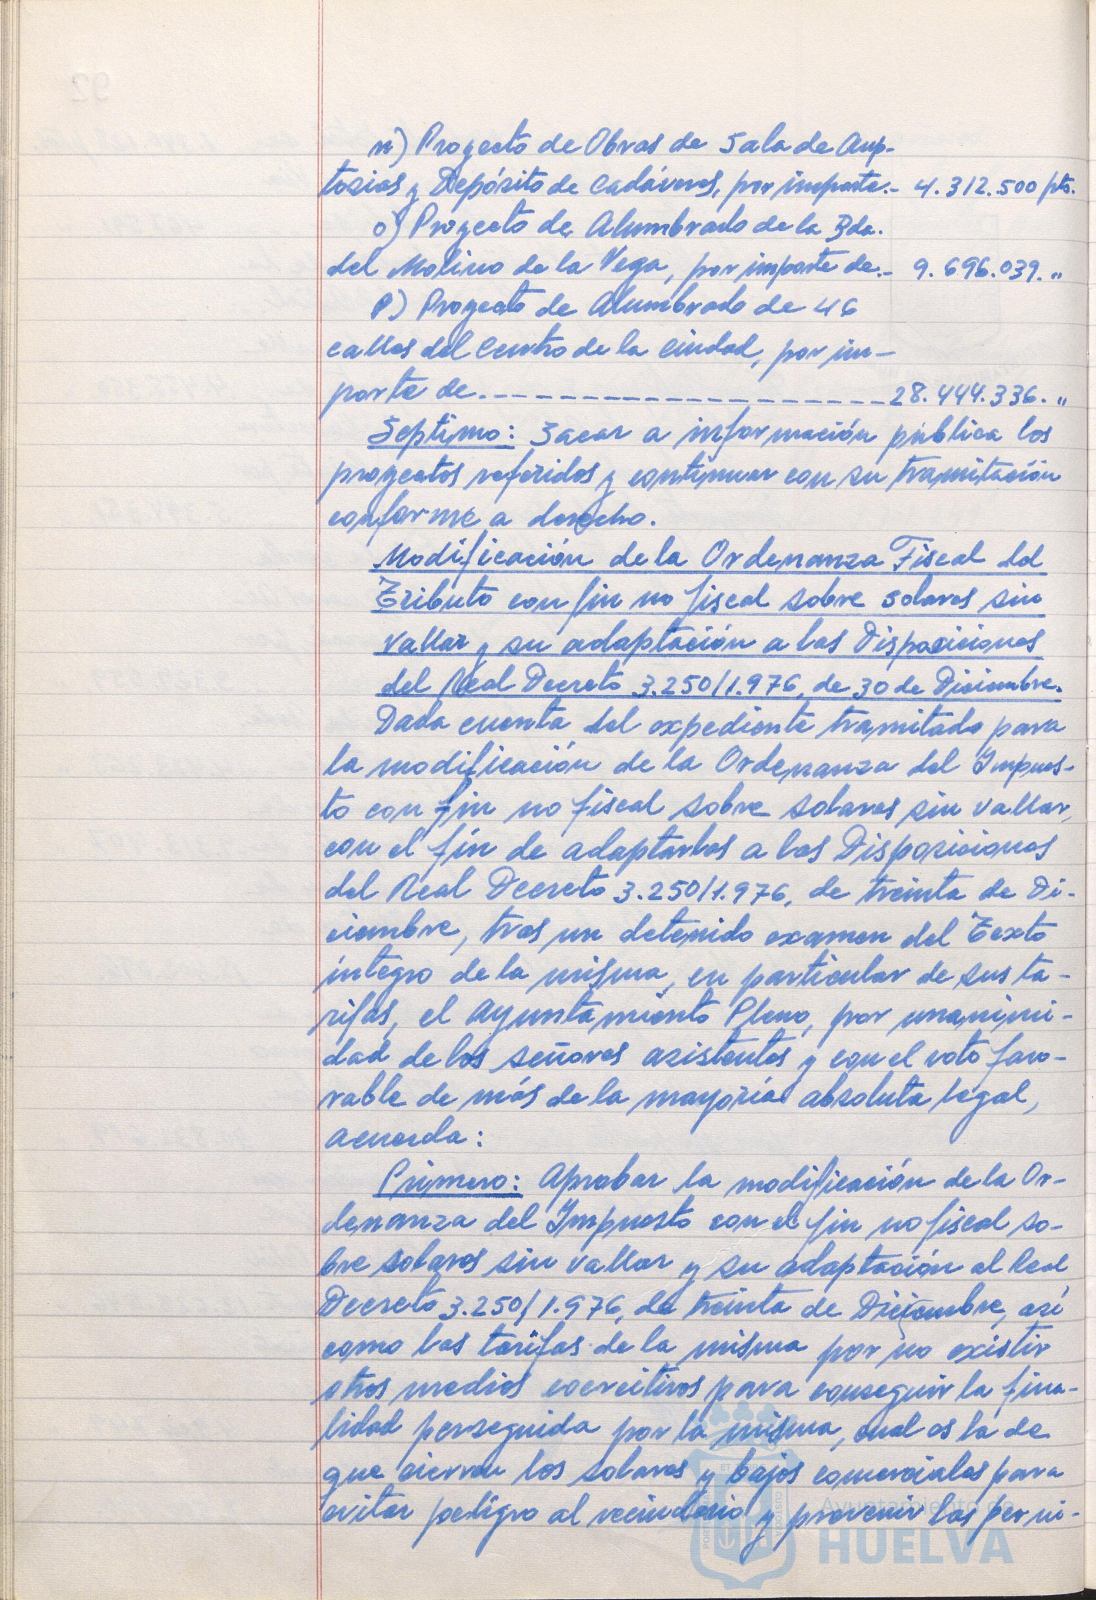 n) Proyecto de Obras de Sala de Aup-
tosias y Depósito de Cadáveres, por importe.- 4.312.500 pts.
o) Proyecto de Alumbrado de la Bda.
del Molino de la Vega, por importe de.- 9.696.039. "
p) Proyecto de Alumbrado de 46
calles del Centro de la Ciudad, por im-
porte de.------------------28.444.336. "
Séptimo: Sacar a información pública los
proyectos referidos y continuar con su tramitación
conforme a derecho.
Modificación de la Ordenanza Fiscal del
Tributo con fin no fiscal sobre solares sin
vallar y su adaptación a las Disposiciones
del Real Decreto 3.250/1.976, de 30 de Diciembre.
Dada cuenta del expediente tramitado para
la modificación de la Ordenanza del Impues-
to con fin no fiscal sobre solares sin vallar,
con el fin de adaptarlas a las Disposiciones
del Real Decreto 3.250/1.976, de treinta de Di-
ciembre, tras un detenido examen del Texto
íntegro de la misma, en particular de sus ta-
rifas, el Ayuntamiento Pleno, por unanimi-
dad de los señores asistentes y con el voto favo-
rable de más de la mayoría absoluta legal,
acuerda:
Primero: Aprobar la modificación de la Or-
denanza del Impuesto con el fin no fiscal so-
bre solares sin vallar y su adaptación al Real
Decreto 3.250/1.976, de treinta de Diciembre, así
como las tarifas de la misma por no existir
otros medios coercitivos para conseguir la fina-
lidad perseguida por la misma, cual es la de
que cierren los solares y bajos comerciales para
evitar peligro al vecindario y prevenir las perni-
Ayuntamiento de
HUELVA